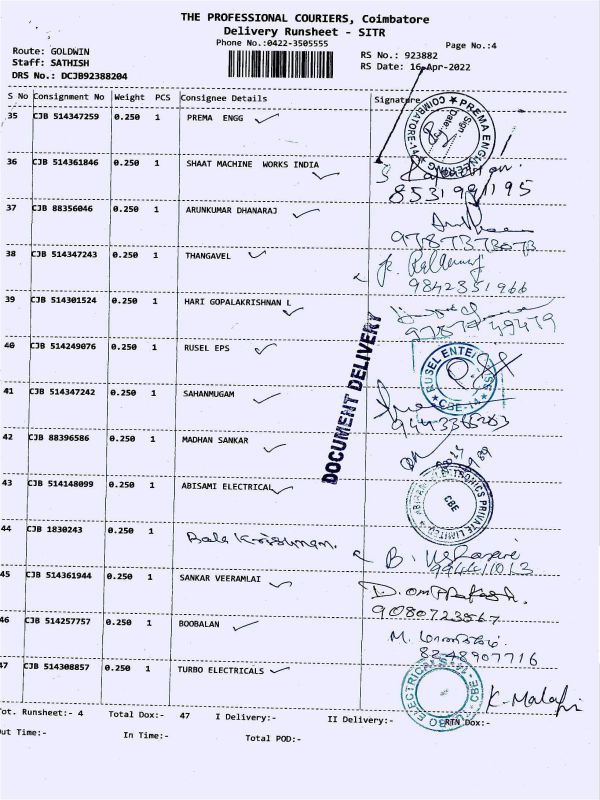 THE PROFESSIONAL COURIERS, Coimbatore
Delivery Runsheet - SITR
Phone No.:0422-3505555
Page No.:4
Route: GOLDWIN
RS No.: 923882
Staff: SATHISH
RS Date: 16-Apr-2022
DRS No.: DCJB92388204
S No Consignment No Weight PCS Consignee Details Signature
35 CJB 514347259 0.250 1 PREMA ENGG
PREMA ENGINEERING COIMBATORE-14
Sign
Date
36 CJB 514361846 0.250 1 SHAAT MACHINE WORKS INDIA
8531981195
37 CJB 88356046 0.250 1 ARUNKUMAR DHANARAJ
38 CJB 514347243 0.250 1 THANGAVEL
9842351966
39 CJB 514301524 0.250 1 HARI GOPALAKRISHNAN L
DOCUMENT DELIVERY
40 CJB 514249076 0.250 1 RUSEL EPS
RUSEL ENTERPRISES CBE-14
41 CJB 514347242 0.250 1 SAHANMUGAM
42 CJB 88396586 0.250 1 MADHAN SANKAR
43 CJB 514148099 0.250 1 ABISAMI ELECTRICAL
ELECTRONICS PRIVATE LIMITED
CBE
44 CJB 1830243 0.250 1 Bala Krishnan.
45 CJB 514361944 0.250 1 SANKAR VEERAMLAI
D. omprakash.
9080723567
46 CJB 514257757 0.250 1 BOOBALAN
8248907716
47 CJB 514308857 0.250 1 TURBO ELECTRICALS
TURBO ELECTRICALS CBE-14
K. Malathi
Tot. Runsheet:- 4 Total Dox:- 47 I Delivery:- II Delivery:- RTN Dox:-
Out Time:- In Time:- Total POD:-